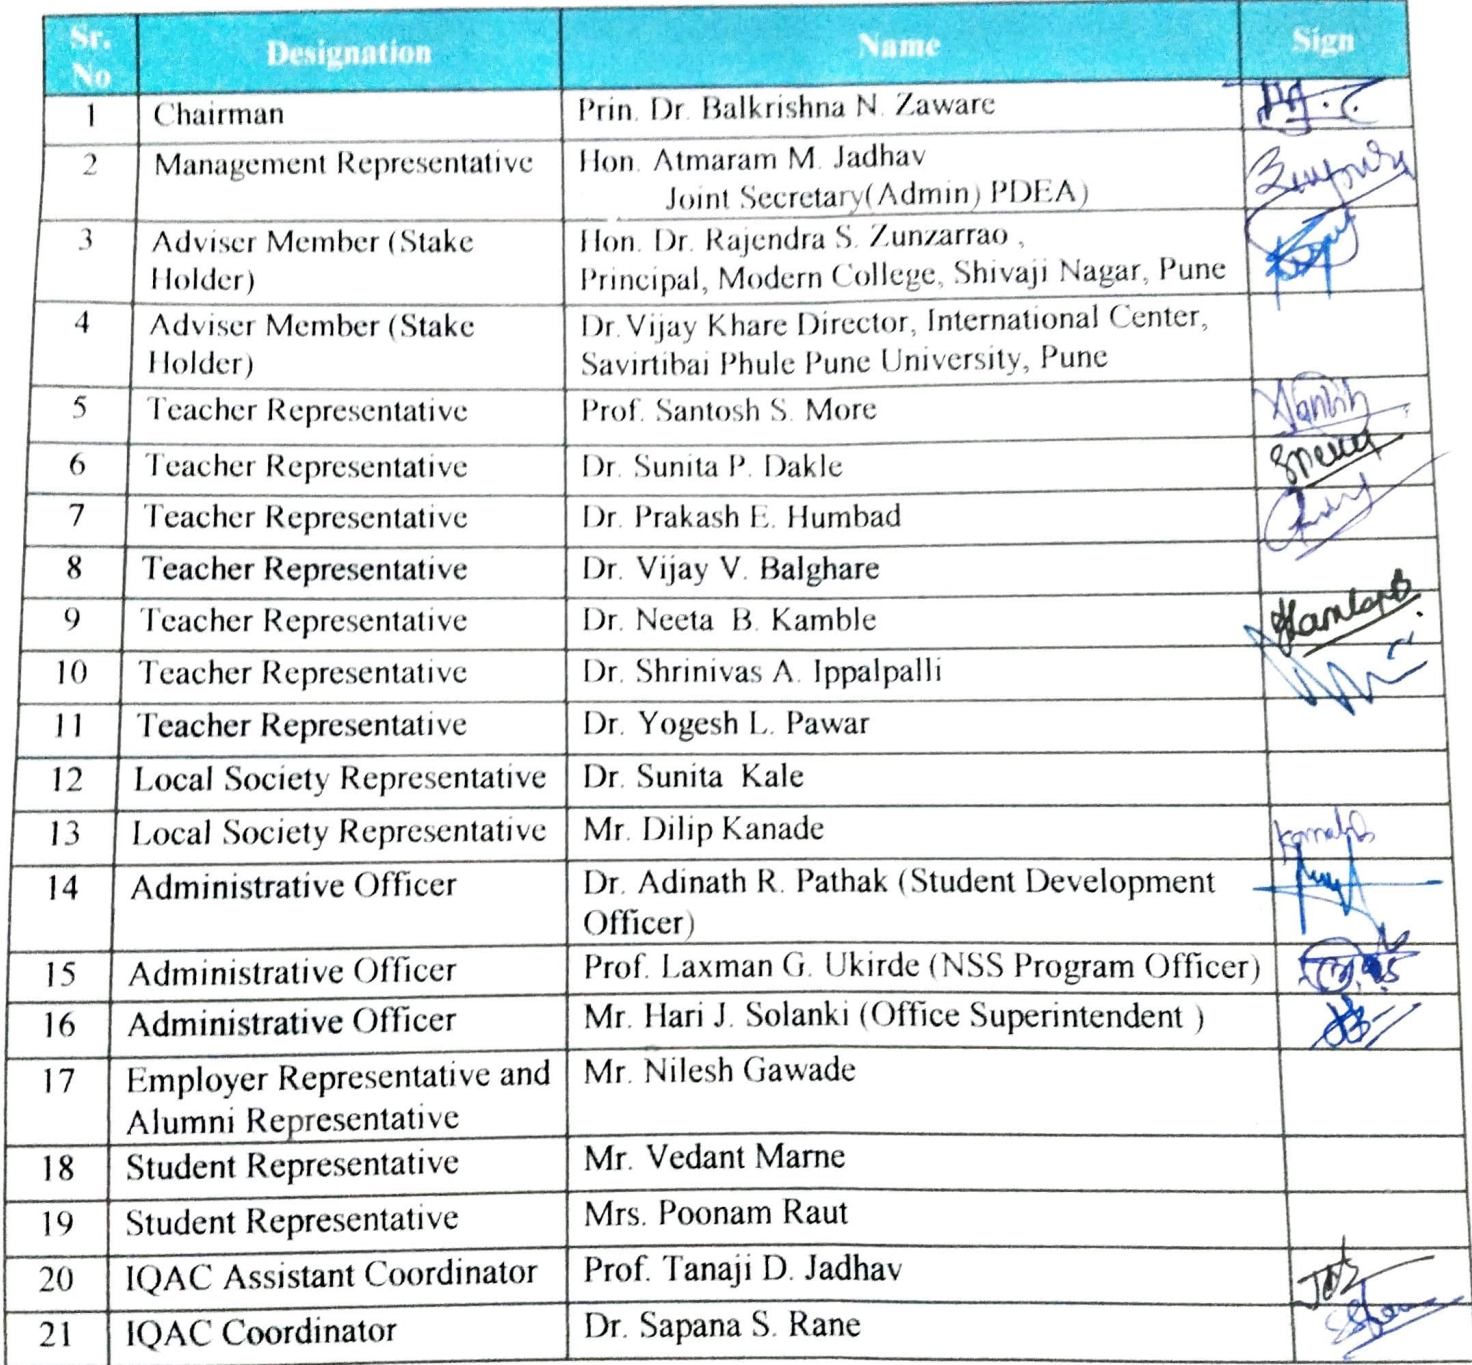 Sr. No Designation Name Sign
1 Chairman Prin. Dr. Balkrishna N. Zaware
2 Management Representative Hon. Atmaram M. Jadhav
Joint Secretary(Admin) PDEA)
3 Adviser Member (Stake Hon. Dr. Rajendra S. Zunzarrao ,
Holder) Principal, Modern College, Shivaji Nagar, Pune
4 Adviser Member (Stake Dr. Vijay Khare Director, International Center,
Holder) Savirtibai Phule Pune University, Pune
5 Teacher Representative Prof. Santosh S. More
6 Teacher Representative Dr. Sunita P. Dakle
7 Teacher Representative Dr. Prakash E. Humbad
8 Teacher Representative Dr. Vijay V. Balghare
9 Teacher Representative Dr. Neeta B. Kamble
10 Teacher Representative Dr. Shrinivas A. Ippalpalli
11 Teacher Representative Dr. Yogesh L. Pawar
12 Local Society Representative Dr. Sunita Kale
13 Local Society Representative Mr. Dilip Kanade
14 Administrative Officer Dr. Adinath R. Pathak (Student Development
Officer)
15 Administrative Officer Prof. Laxman G. Ukirde (NSS Program Officer)
16 Administrative Officer Mr. Hari J. Solanki (Office Superintendent )
17 Employer Representative and Mr. Nilesh Gawade
Alumni Representative
18 Student Representative Mr. Vedant Marne
19 Student Representative Mrs. Poonam Raut
20 IQAC Assistant Coordinator Prof. Tanaji D. Jadhav
21 IQAC Coordinator Dr. Sapana S. Rane